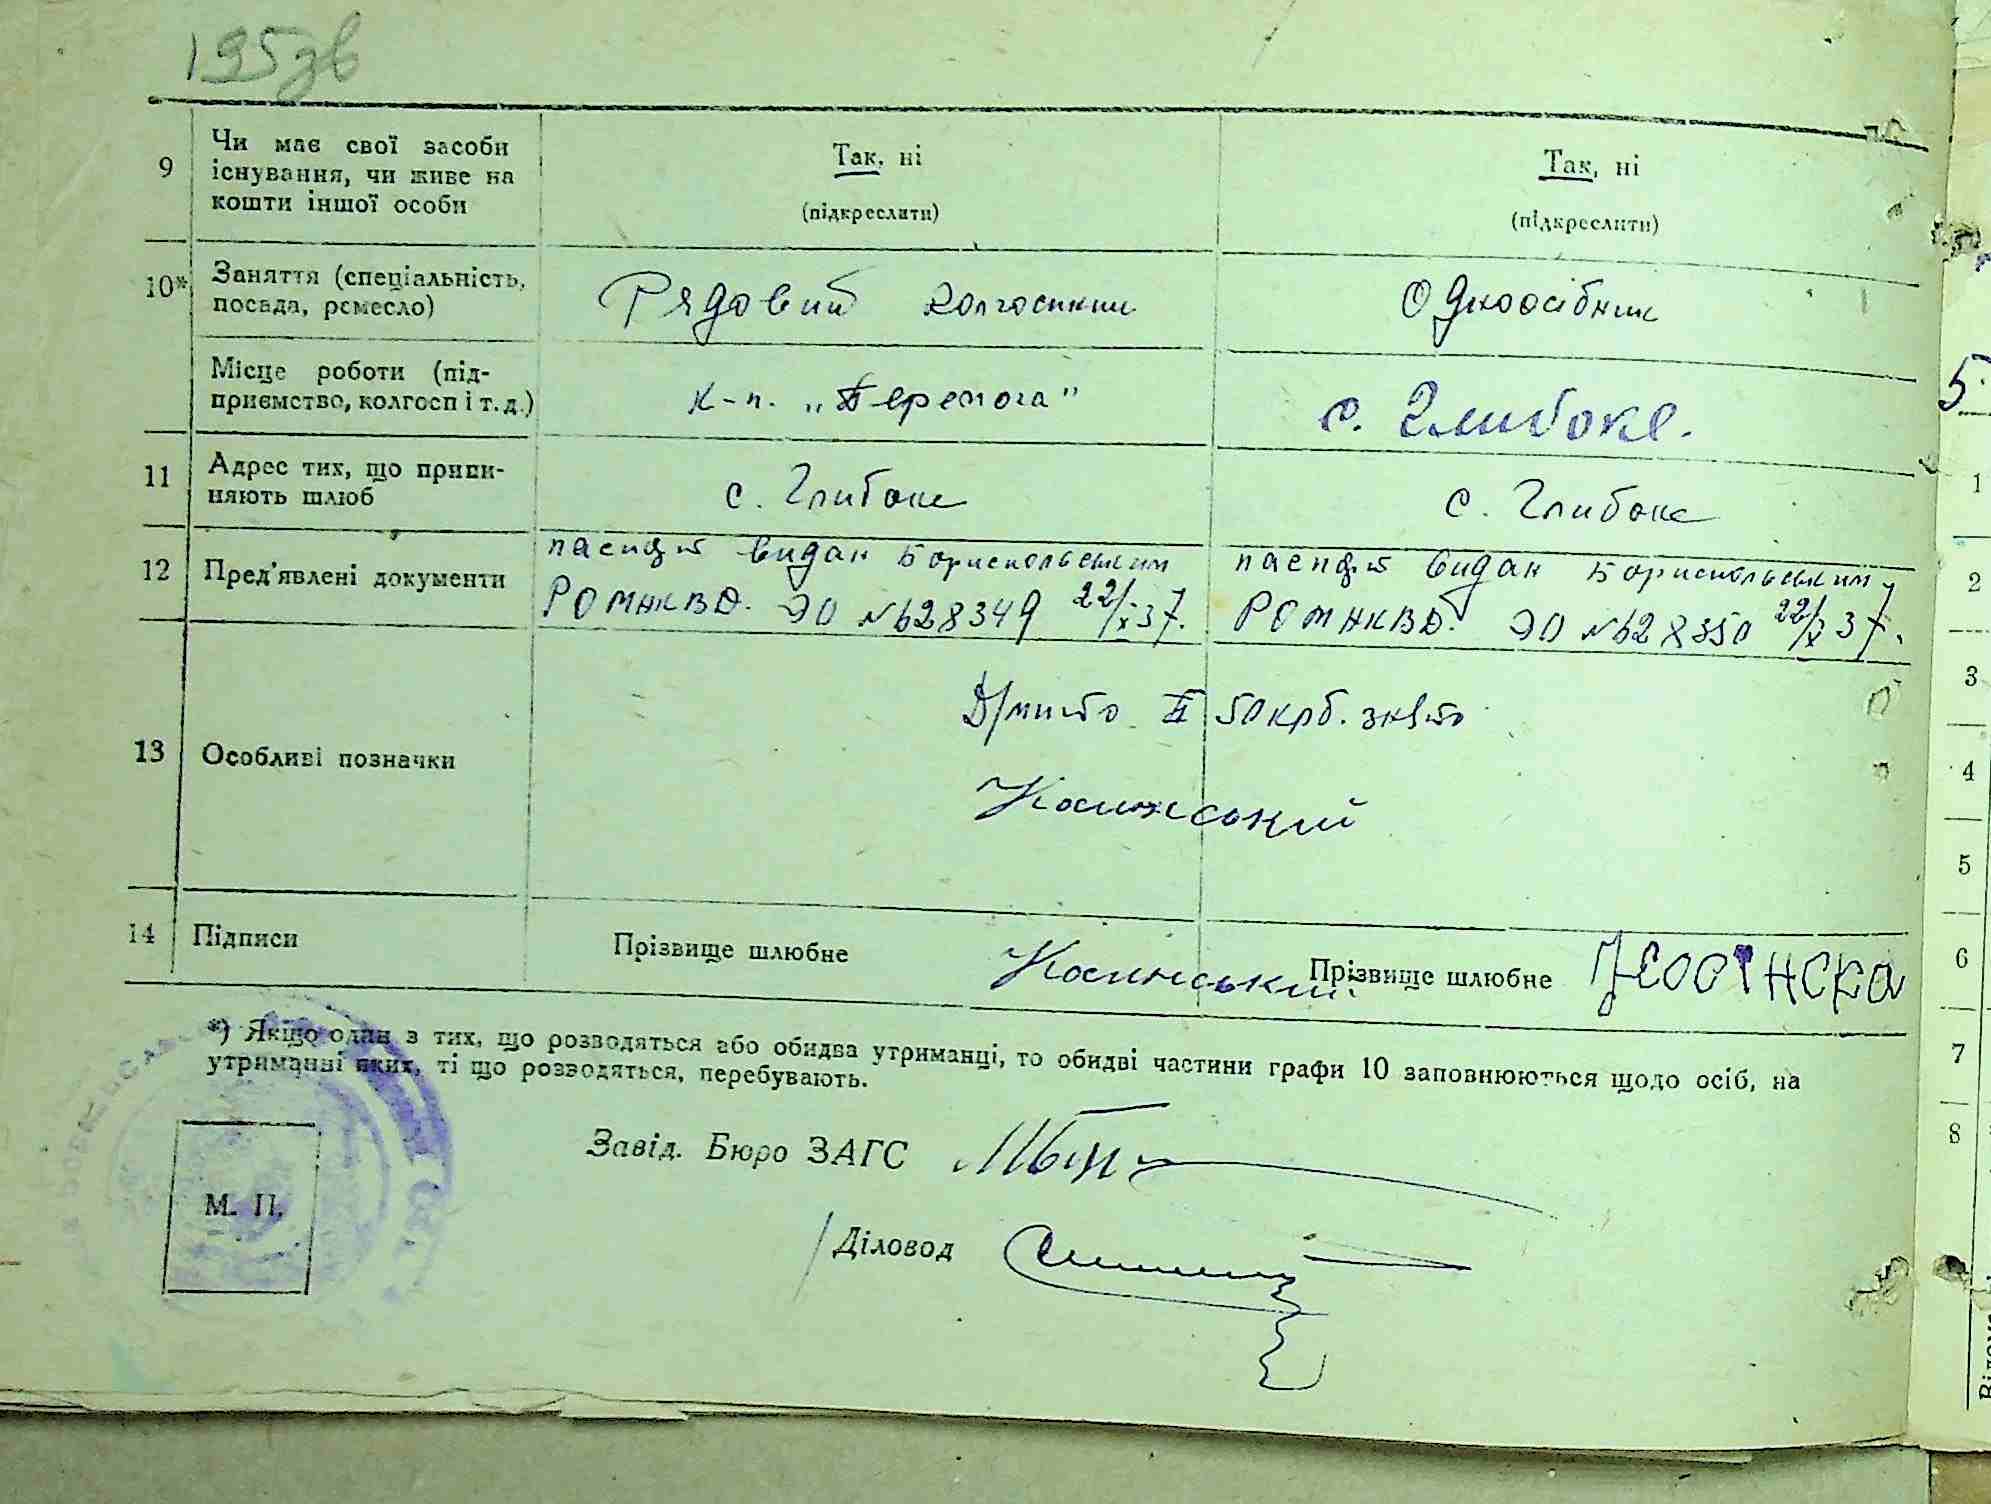 195зв
9
Чи має свої засоби
існування, чи живе на
кошти іншої особи
Так, ні
(підкреслити)
Так, ні
(підкреслити)
10*
Заняття (спеціальність,
посада, ремесло)
Рядовий колгоспник
Одноосібник
Місце роботи (під-
приємство, колгосп і т. д.)
к-п. „Перемога"
с. Глибоке.
11
Адрес тих, що припи-
няють шлюб
с. Глибоке
с. Глибоке
12
Пред'явлені документи
паспорт видан Бориспольським
РОМНКВД. ЭО №628349 22/X 37.
паспорт видан Бориспольським
РОМНКВД. ЭО №628350 22/X 37.
13
Особливі позначки
Д/мито II 50 крб. знято
14
Підписи
Прізвище шлюбне
Прізвище шлюбне
*) Якщо один з тих, що розводяться або обидва утриманці, то обидві частини графи 10 заповнюються щодо осіб, на
утриманні яких, ті що розводяться, перебувають.
М. П.
Завід. Бюро ЗАГС
Діловод
5
1
2
3
4
5
6
7
8